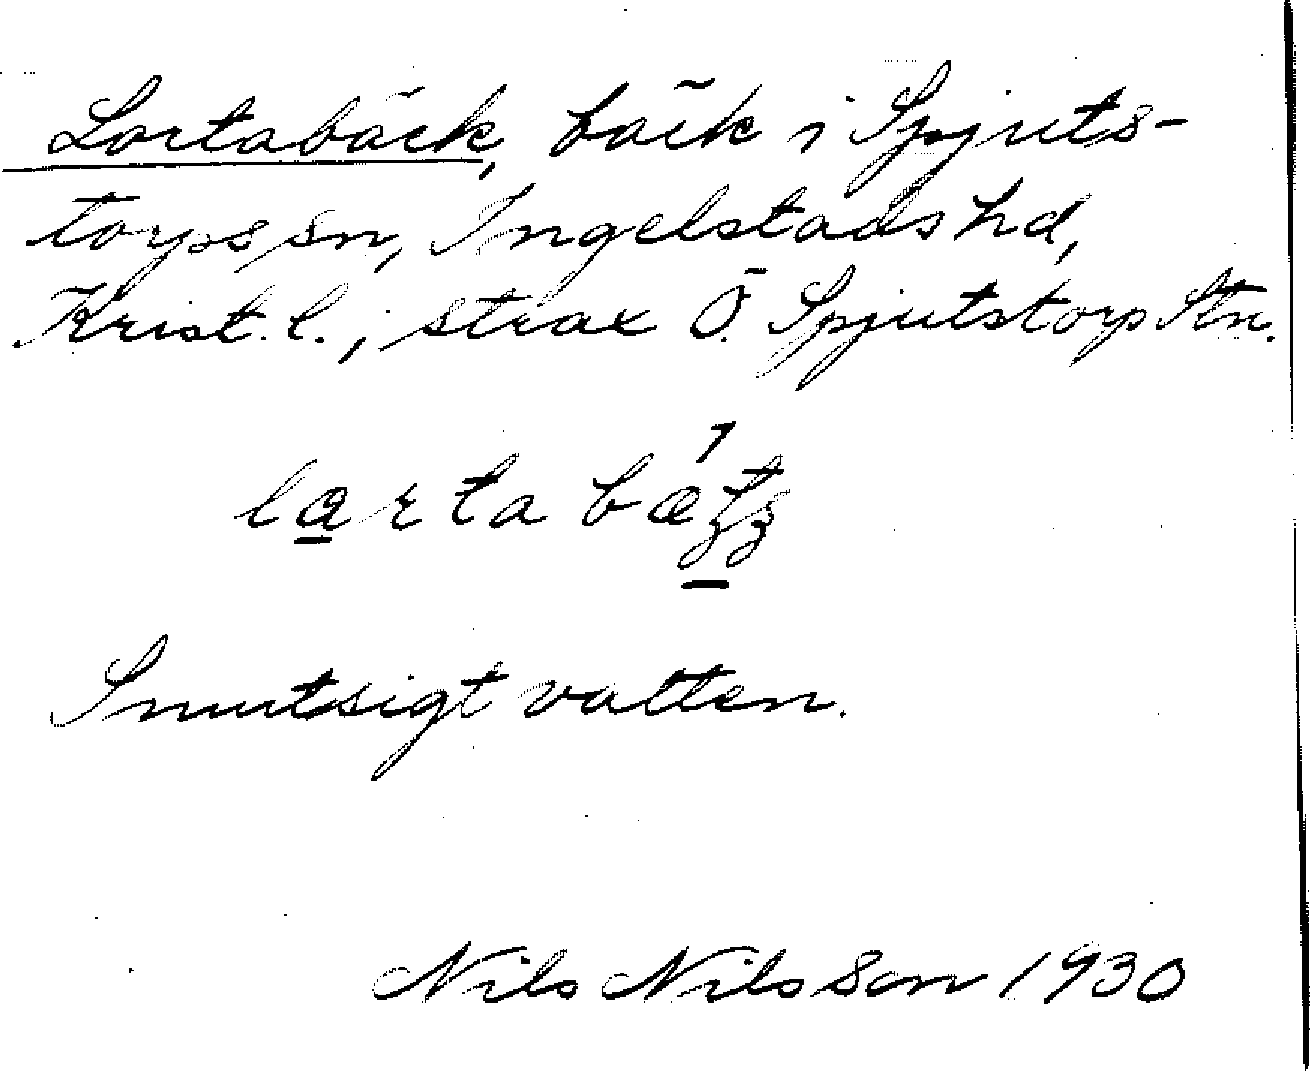 Lortabäck, bäck i Spjuts-
torps sn, Ingelstads hd,
Krist. l., strax Ö. Spjutstorp Stn.
Smutsigt vatten.
Nils Nilsson 1930